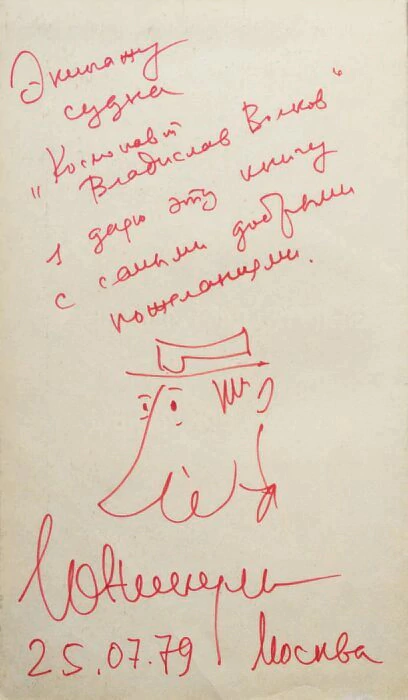 Экипажу
судна
"Космонавт
Владислав Волков"
я дарю эту книгу
с самыми добрыми
пожеланиями.
ЮНикулин
25.07.79 Москва